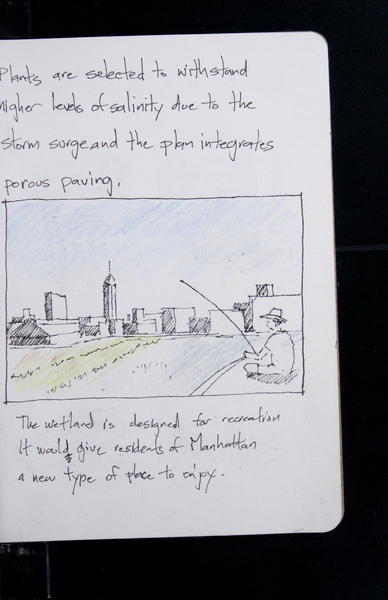 Plants are selected to withstand
higher levels of salinity due to the
storm surge and the plan integrates
porous paving.
The wetland is designed for recreation
It would give residents of Manhattan
a new type of place to enjoy.